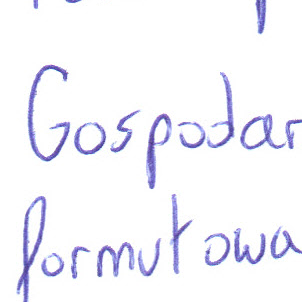 Gospodar
formutowa